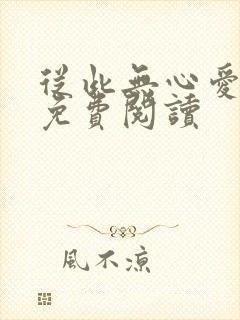 從此無心愛
免費閱讀
風不涼